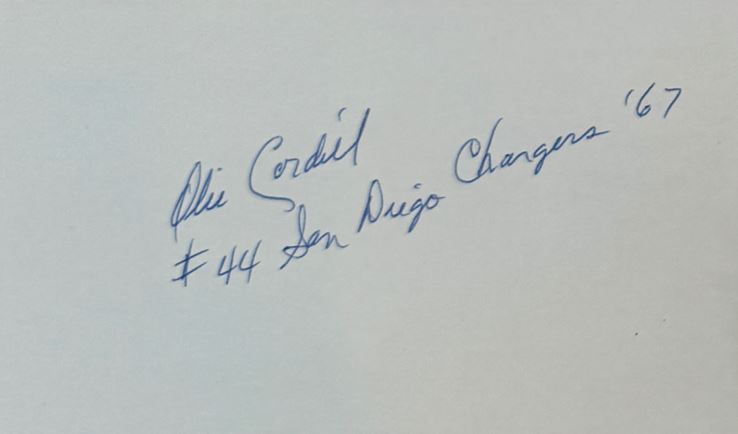 Olie Cordill
#44 San Diego Chargers '67